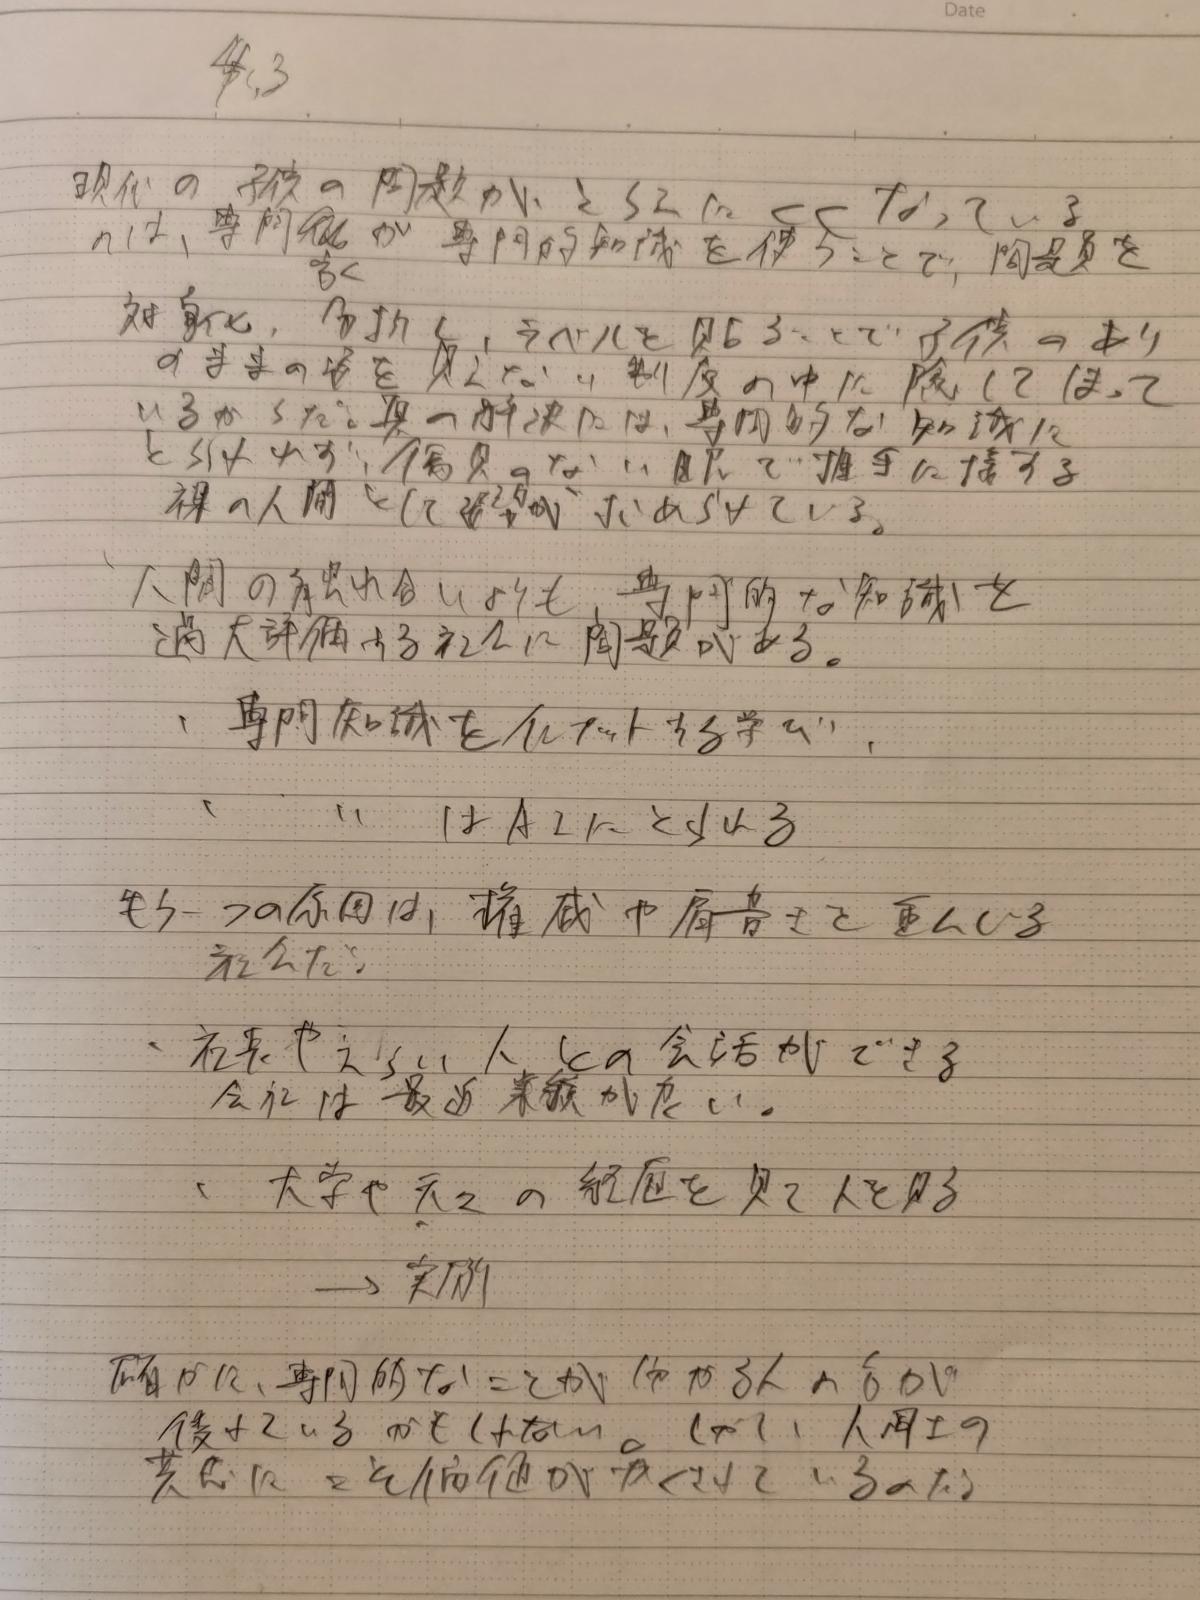 Date
現代の子供の問題が、とらえにくくなっている
のは、専門家が専門的知識を使うことで、問題を
対象化、分析し、ラベルを貼ることで子供のあり
のままの姿を見えない制度の中に隠してしまって
いるからだ。真の解決には、専門的な知識に
とらわれず、偏見のない眼で相手に接する
裸の人間として姿勢が求められている。
人間の触れ合いよりも、専門的な知識を
過大評価する社会に問題がある。
・専門知識をインプットする学び、
・〃はAIにとられる
もう一つの原因は、権威や肩書きを重んじる
社会だ。
・社長やえらい人との会話ができる
会社は最近業績が良い。
・大学や の経歴を見て人を見る
→実例
確かに、専門的なことが分かる人の方が
優れているかもしれない。しかし、人同士の
共感にこそ価値が いるのだ。